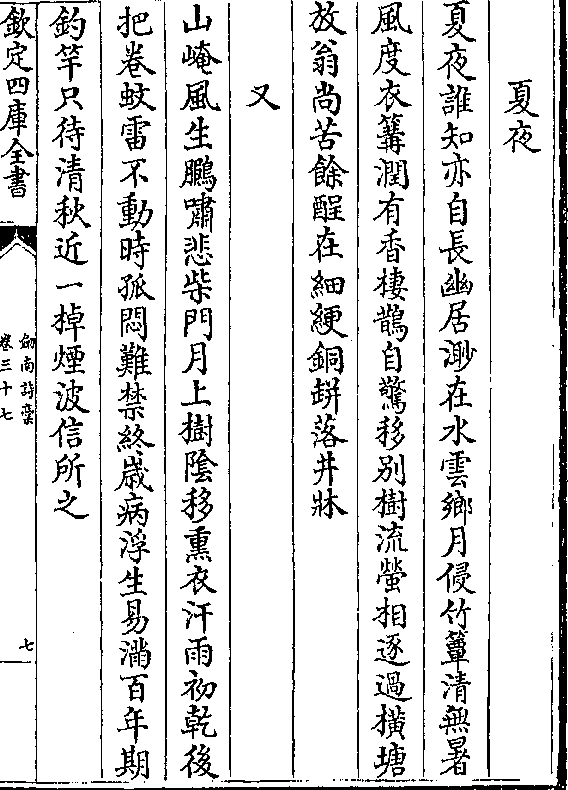 夏夜
夏夜誰知亦自長幽居渺在水雲鄉月侵竹簟清無暑
風度衣篝潤有香棲鵲自驚移別樹流螢相逐過橫塘
放翁尚苦餘酲在細綆銅缾落井牀
又
山崦風生鵩嘯悲柴門月上樹陰移熏衣汗雨初乾後
把卷蚊雷不動時孤悶難禁終歲病浮生易滿百年期
釣竿只待清秋近一棹煙波信所之
欽定四庫全書
劒南詩稾
卷三十七
七